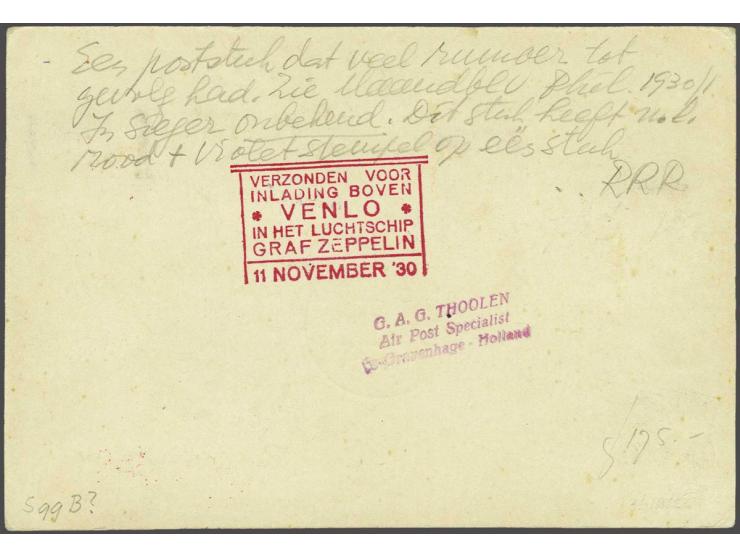 Een poststuk dat veel rumoer tot
gevolg had. Zie Maandbl. Phil. 1930/1.
In Sieger onbekend. Dit stuk heeft n.l.
rood + violet stempel op één stuk
RRR
VERZONDEN VOOR
INLADING BOVEN
VENLO
IN HET LUCHTSCHIP
GRAF ZEPPELIN
11 NOVEMBER '30
G. A. G. THOOLEN
Air Post Specialist
's-Gravenhage - Holland
175.-
S 99 B?